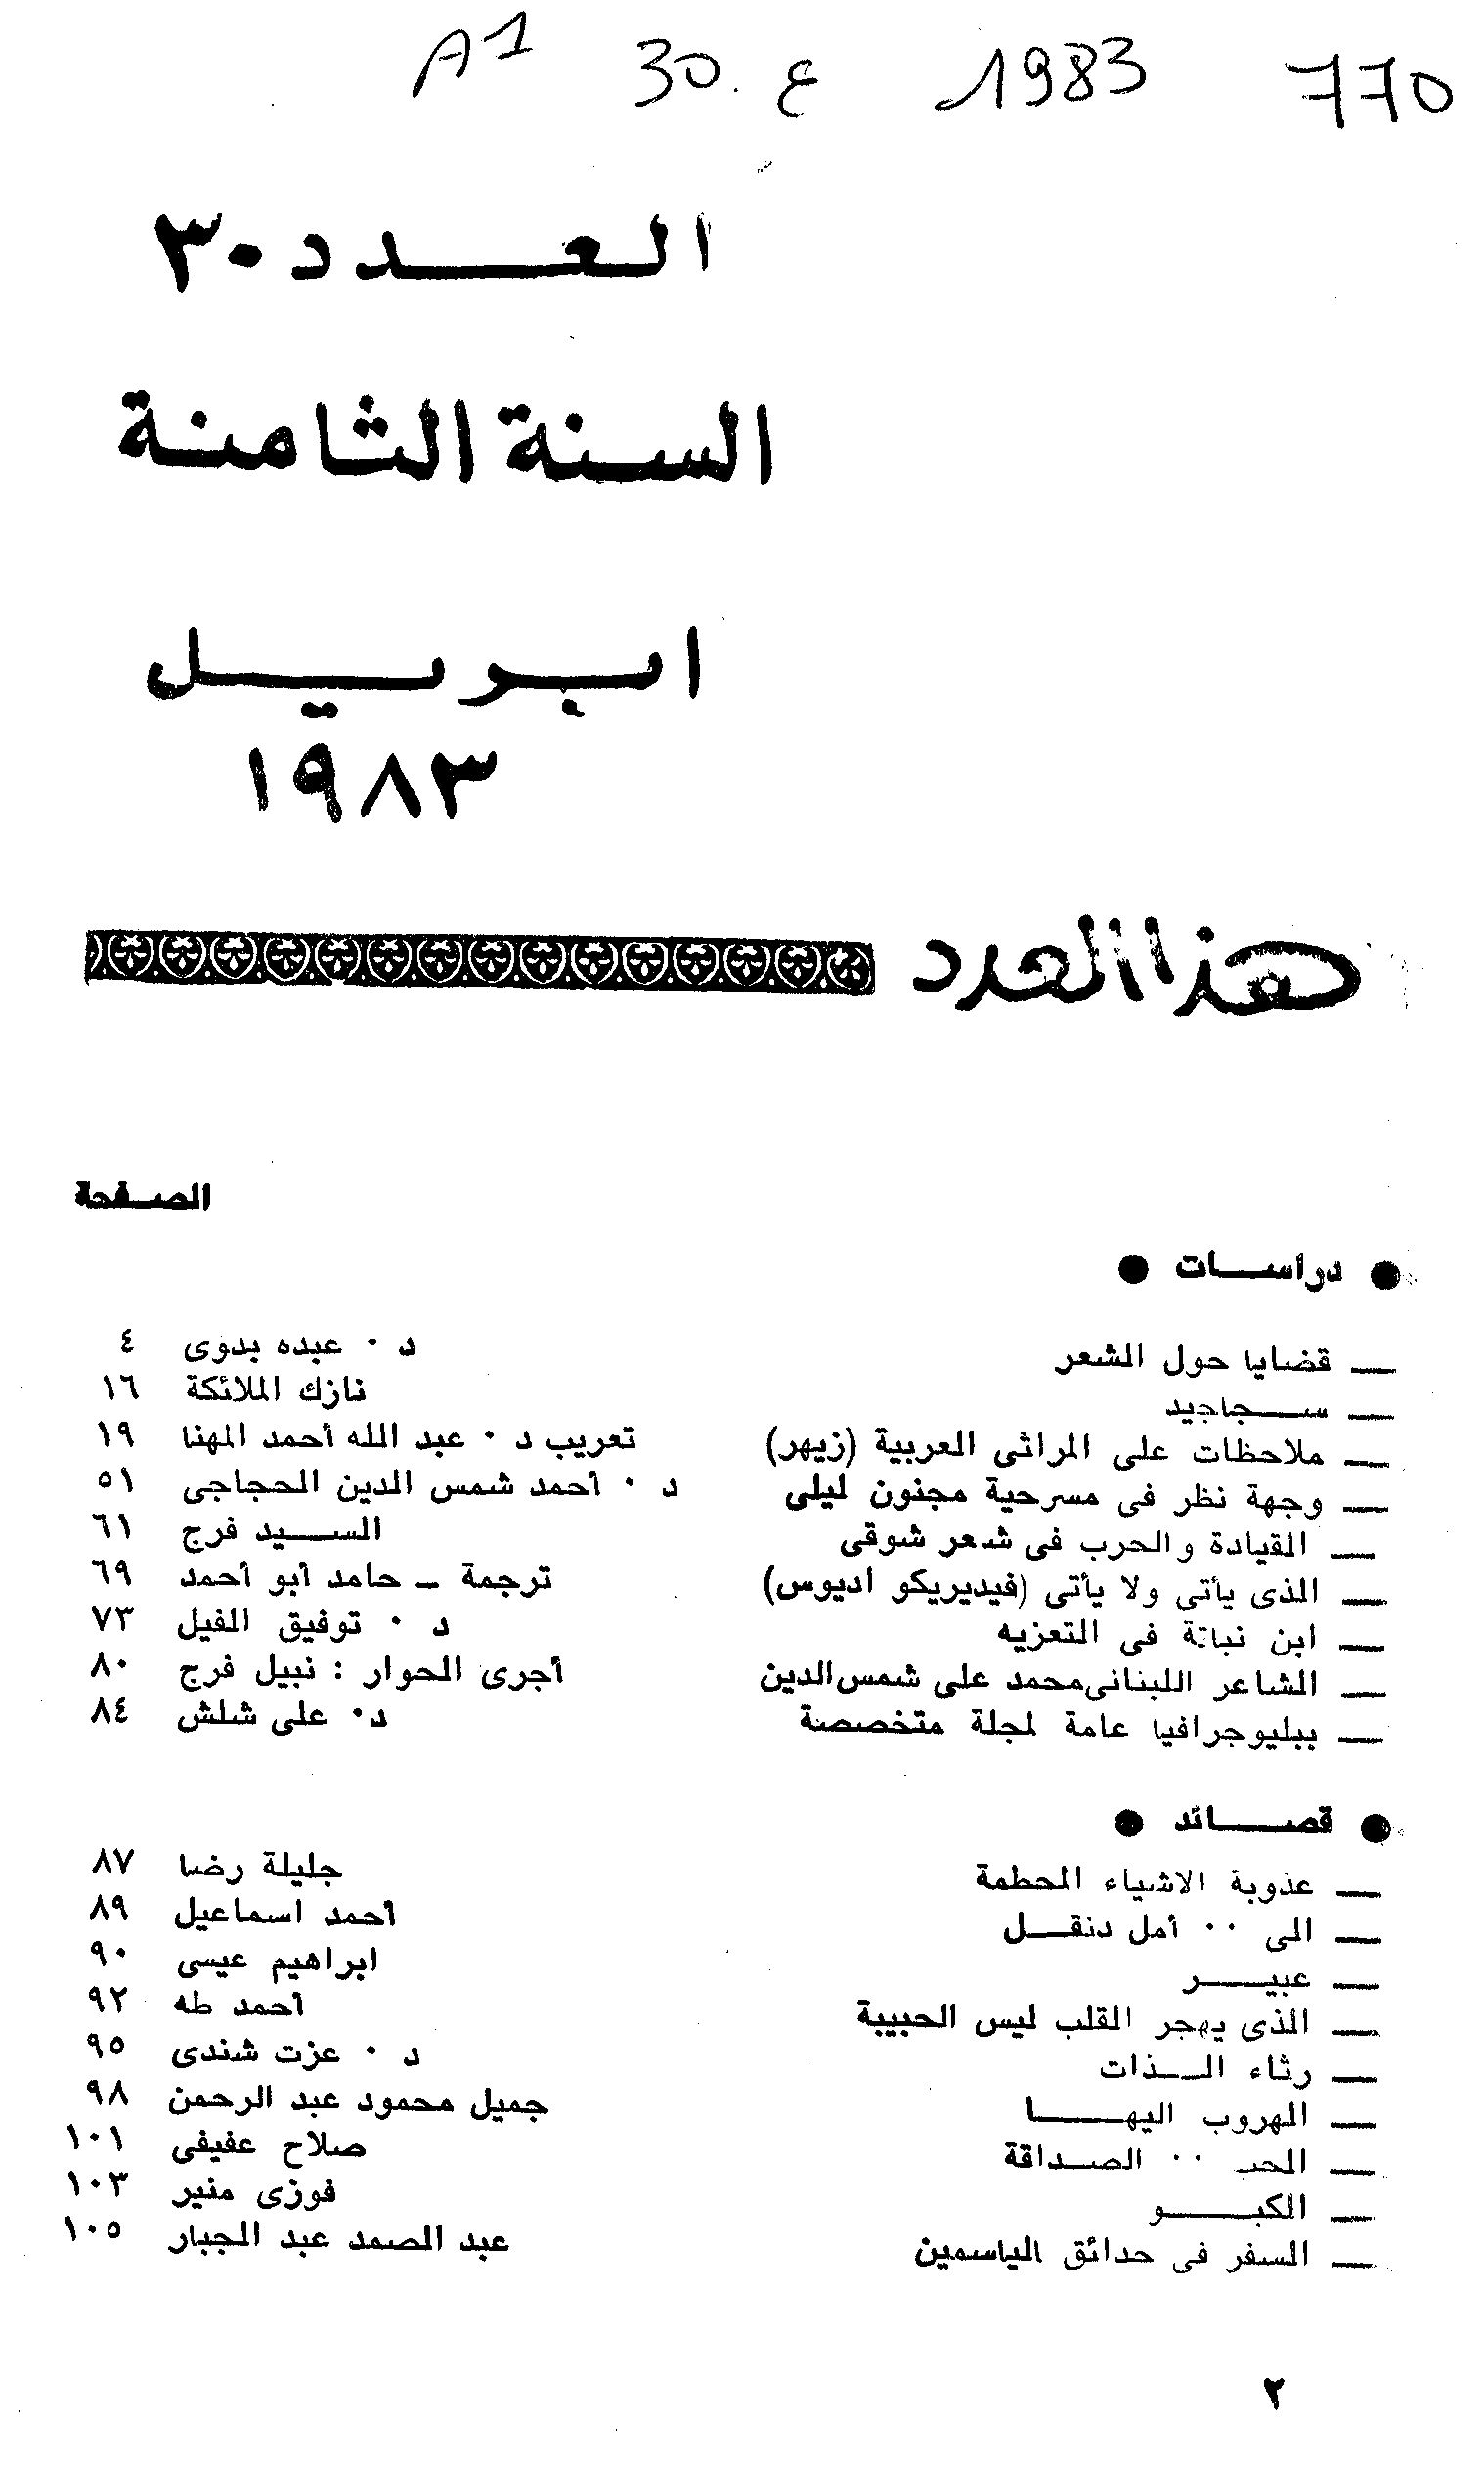 A1 30. ع 1983 770
العدد ٣٠
السنة الثامنة
ابريل
١٩٨٣
هذا العدد
الصفحة
● دراسات ●
— قضايا حول الشعر د . عبده بدوى ٤
— سجاجيد نازك الملائكة ١٦
— ملاحظات على المراثى العربية (زيهر) تعريب د . عبد الله أحمد المهنا ١٩
— وجهة نظر فى مسرحية مجنون ليلى د . أحمد شمس الدين الحجاجى ٥١
— القيادة والحرب فى شعر شوقى السيد فرج ٦١
— الذى يأتى ولا يأتى (فيديريكو اديوس) ترجمة – حامد أبو أحمد ٦٩
— ابن نباتة فى التعزيه د . توفيق الفيل ٧٣
— الشاعر اللبنانى محمد على شمس الدين أجرى الحوار : نبيل فرج ٨٠
— ببليوجرافيا عامة لمجلة متخصصة د. على شلش ٨٤
● قصائد ●
— عذوبة الاشياء المحطمة جليلة رضا ٨٧
— الى .. أمل دنقل أحمد اسماعيل ٨٩
— عبير ابراهيم عيسى ٩٠
— الذى يهجر القلب ليس الحبيبة أحمد طه ٩٢
— رثاء الذات د . عزت شندى ٩٥
— الهروب اليها جميل محمود عبد الرحمن ٩٨
— الحب .. الصداقة صلاح عفيفى ١٠١
— الكبو فوزى منير ١٠٣
— السفر فى حدائق الياسمين عبد الصمد عبد الجبار ١٠٥
٢